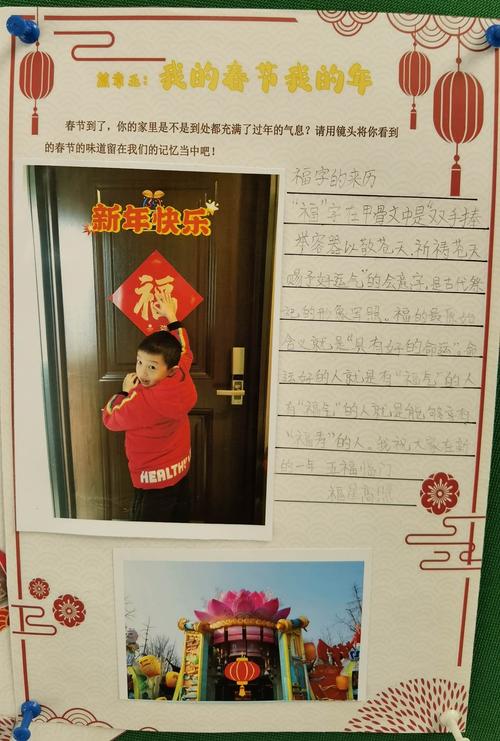 篇章五：我的春节我的年
春节到了，你的家里是不是到处都充满了过年的气息？请用镜头将你看到
的春节的味道留在我们的记忆当中吧！
新年快乐
福
HEALTHY
福字的来历
"福"字在甲骨文中是"双手捧
举容器以敬苍天，祈祷苍天
赐予好运气"的会意字，是古代祭
祀的形象写照。福的最原始
含义就是"具有好的命运"。命
运好的人就是有"福气"的人
有"福气"的人就是能够享有
"福寿"的人。我祝大家在新
的一年 五福临门
福星高照